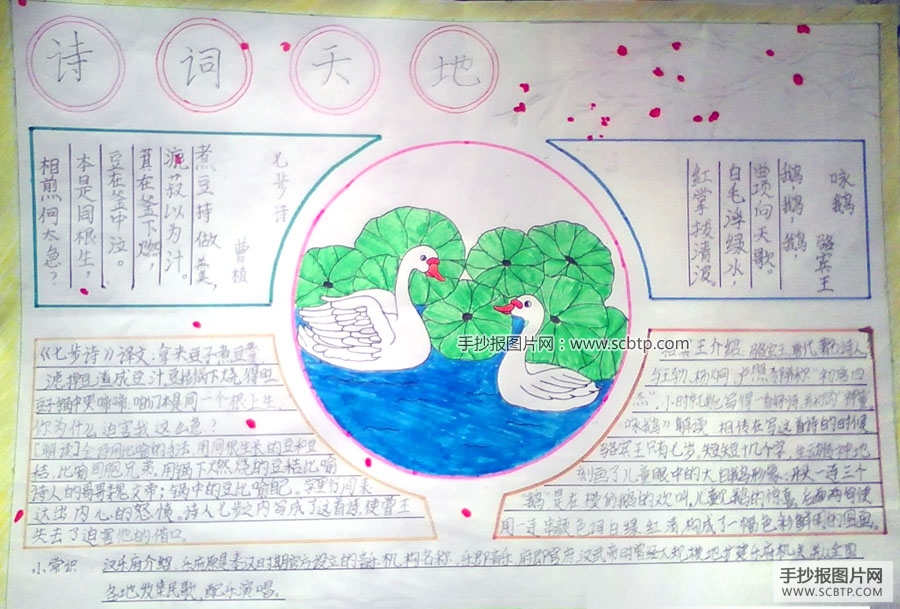 诗词天地
七步诗
曹植
煮豆持做羹，
漉菽以为汁。
萁在釜下燃，
豆在釜中泣。
本是同根生，
相煎何太急？
咏鹅
骆宾王
鹅，鹅，鹅，
曲项向天歌。
白毛浮绿水，
红掌拨清波。
手抄报图片网：www.scbtp.com
《七步诗》译文：拿来豆子煮豆羹，
滤掉豆渣成豆汁，豆秸锅下烧，
豆子锅中哭啼啼：咱们本是同一个根上生，
你为什么迫害我这么急？
[解读]全诗用比喻的手法，用同根生长的豆和豆
秸，比喻同胞兄弟，用锅下燃烧的豆秸比喻
诗人的哥哥魏文帝；锅中的豆比喻自己。字里行间表
达出内心的怒愤。诗人七步之内写成了这首诗，使曹王
失去了迫害他的借口。
骆宾王介绍：骆宾王，唐代诗人
与王勃、杨炯、卢照邻称"初唐四
杰"，小时就能写得一首好诗
咏鹅》解读 相传在写这首诗的时候
骆宾王只有七岁，短短十几个字，生动精神地
刻画了儿童眼中的大白鹅形象，开头一连三个
"鹅"是在模仿鹅的欢叫，
用一连串颜色词白绿红青，构成了一幅色彩鲜明的图画。
小常识 汉乐府介绍：乐府原是秦汉时期官方设立的音乐机构名称，乐即音乐，府即官府，
各地收集民歌，配乐演唱。
手抄报图片网
WWW.SCBTP.COM